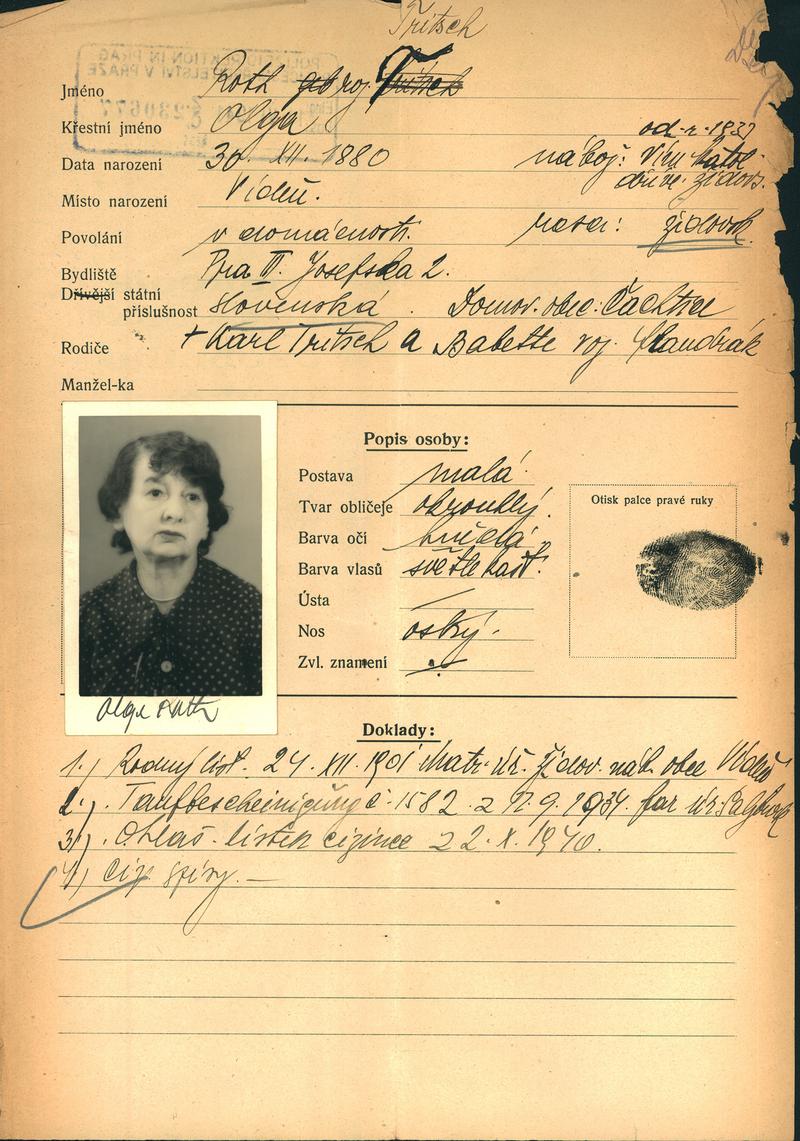 Tritsch
Jméno Roth roj. Tritsch
Křestní jméno Olga
od r. 1937
Data narození 30. XII. 1880 nábož: řím. katol.
dříve: židovs.
Místo narození Vídeň.
Povolání v domácnosti. rasa: židovsk.
Bydliště Pra III. Josefska 2.
Dřívější státní
příslušnost slovenská. Domov. obec: Čachtice
Rodiče + Karl Tritsch a Babette roj.
Manžel-ka
Popis osoby:
Postava malá
Tvar obličeje okrouhlý.
Barva očí hnědá
Barva vlasů světle kašt.
Ústa
Nos
Zvl. znamení
Otisk palce pravé ruky
Olga Roth
Doklady:
1.) Rodný list. 24. XII. 1901 Matr. úř. židov. náb. obce Vídeň
2.) Taufbescheinigung č. 1582 z 17.9.1937 far. úř.
3.) Ohlaš. lístek cizince 22. X. 1940.
4.)